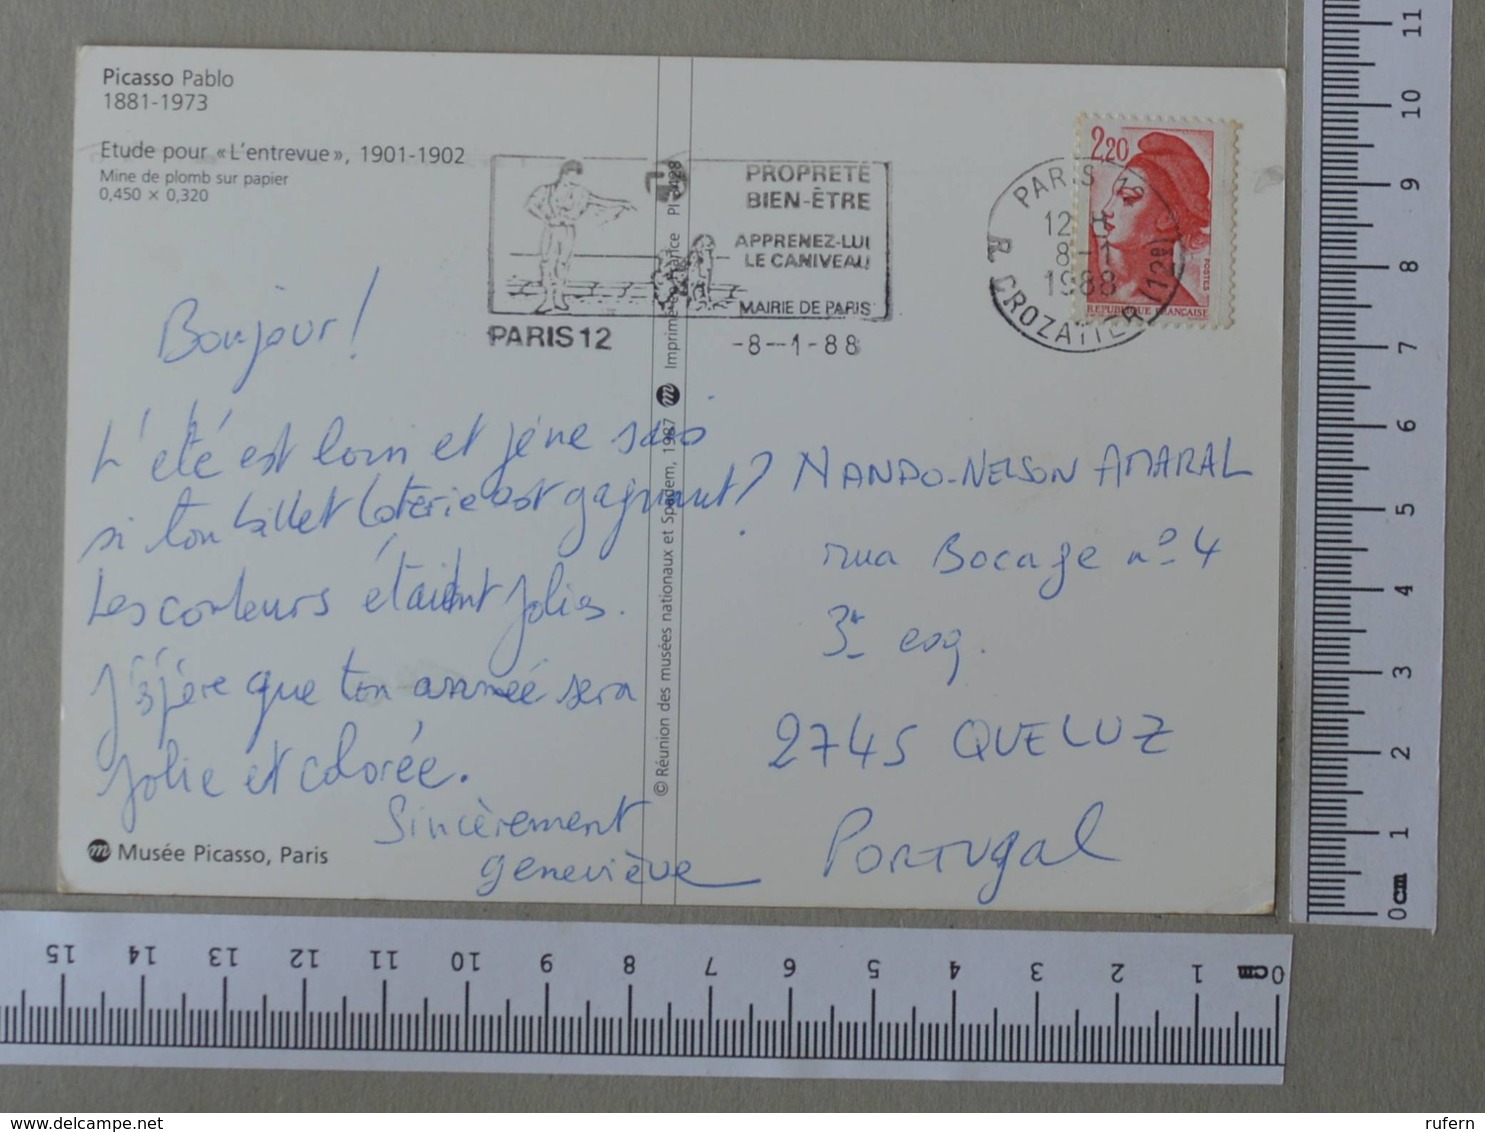 Picasso Pablo
1881-1973
Etude pour «L'entrevue», 1901-1902
Mine de plomb sur papier
0,450 × 0,320
PROPRETÉ
BIEN-ÊTRE
APPRENEZ-LUI
LE CANIVEAU
MAIRIE DE PARIS
PARIS 12
-8--1-88
PARIS 12
12 H
8-1
1988
R. CROZATIER (12e)
2,20
POSTES
REPUBLIQUE FRANÇAISE
Bonjour!
L'été est loin et je ne sais
si ton billet loterie est gagnant?
Les couleurs étaient jolies.
J'éspère que ton année sera
jolie et colorée.
Sincèrement
Geneviève
Musée Picasso, Paris
© Réunion des musées nationaux et Spadem, 1987
Imprimé France PI
NANDO-NELSON AMARAL
rua Bocage nº 4
3º esq.
2745 QUELUZ
PORTUGAL
11
10
9
8
7
6
5
4
3
2
1
0cm
15 14 13 12 11 10 9 8 7 6 5 4 3 2 1 0cm
rufern